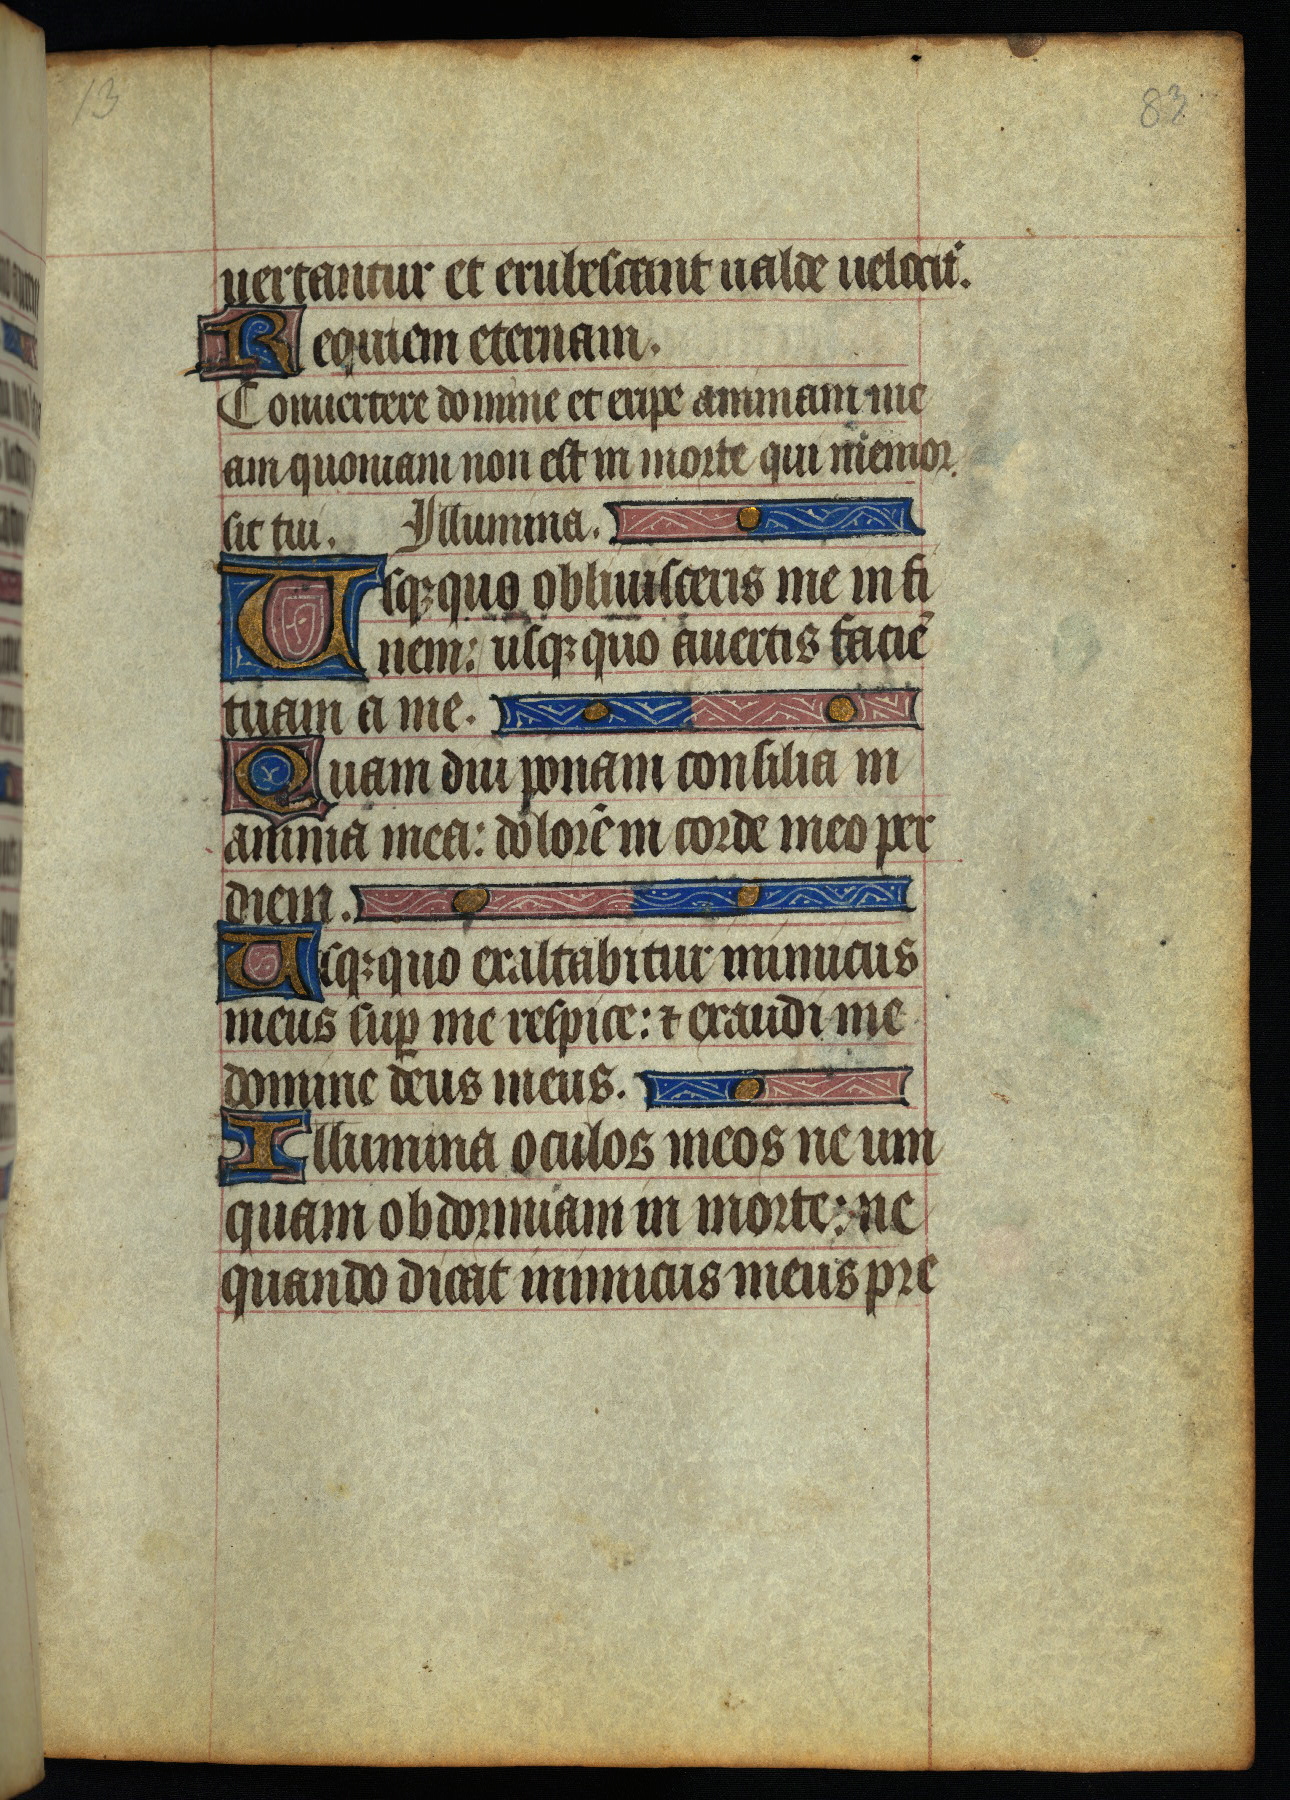 13
83
uertantur et erubescant ualde uelocit̄.
Requiem eternam.
Conuertere domine et eripe animam me
am quoniam non est in morte qui memor
sit tui. Illumina.
Usqꝫquo obliuisceris me in fi
nem: usqꝫquo auertis faciē
tuam a me.
Quam diu ponam consilia in
anima mea: dolorē in corde meo per
diem.
Usqꝫquo exaltabitur inimicus
meus suꝑ me respice: ⁊ exaudi me
domine deus meus.
Illumina oculos meos ne um
quam obdormiam in morte: ne
quando dicat inimicus meus pre